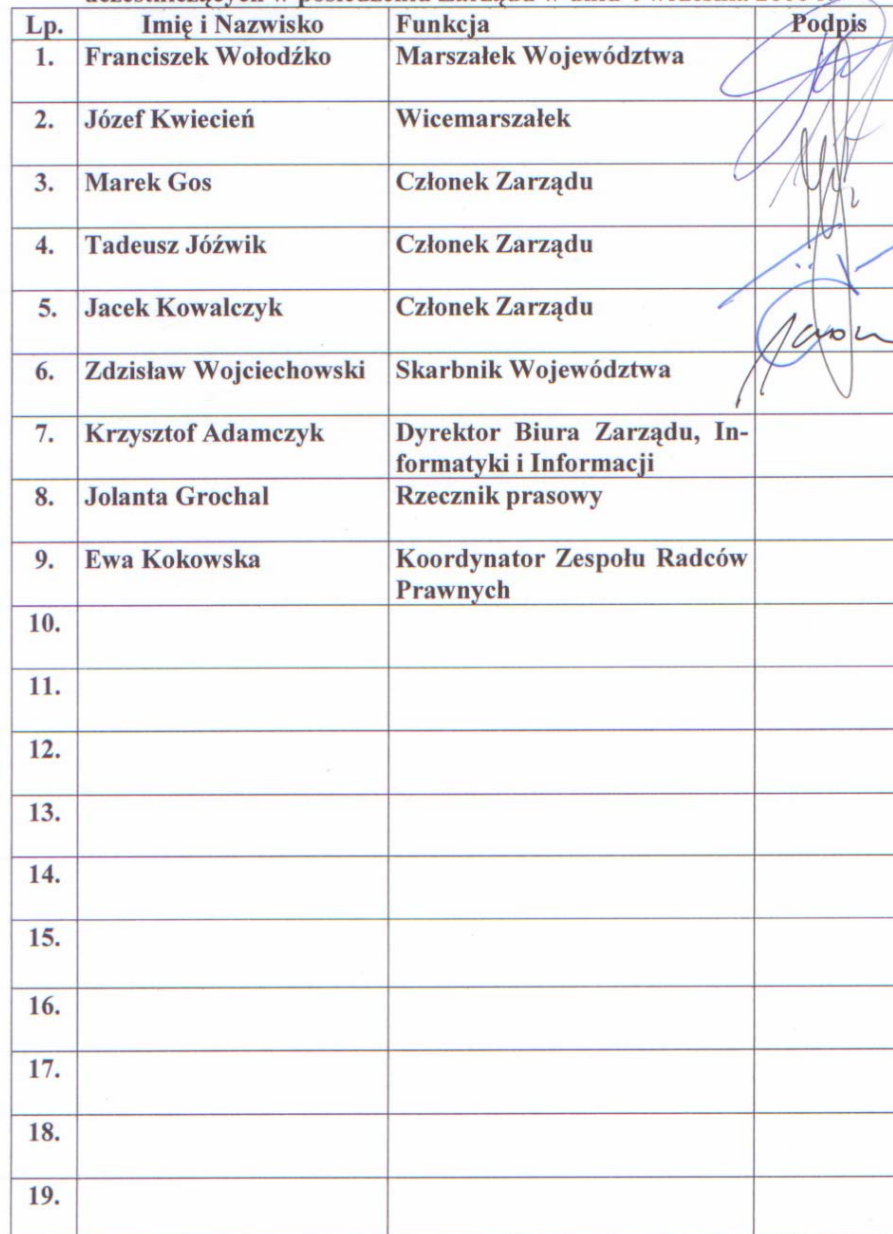 uczestniczących w posiedzeniu Zarządu w dniu
Lp. Imię i Nazwisko Funkcja Podpis
1. Franciszek Wołodźko Marszałek Województwa
2. Józef Kwiecień Wicemarszałek
3. Marek Gos Członek Zarządu
4. Tadeusz Jóźwik Członek Zarządu
5. Jacek Kowalczyk Członek Zarządu
6. Zdzisław Wojciechowski Skarbnik Województwa
7. Krzysztof Adamczyk Dyrektor Biura Zarządu, In-
formatyki i Informacji
8. Jolanta Grochal Rzecznik prasowy
9. Ewa Kokowska Koordynator Zespołu Radców
Prawnych
10.
11.
12.
13.
14.
15.
16.
17.
18.
19.